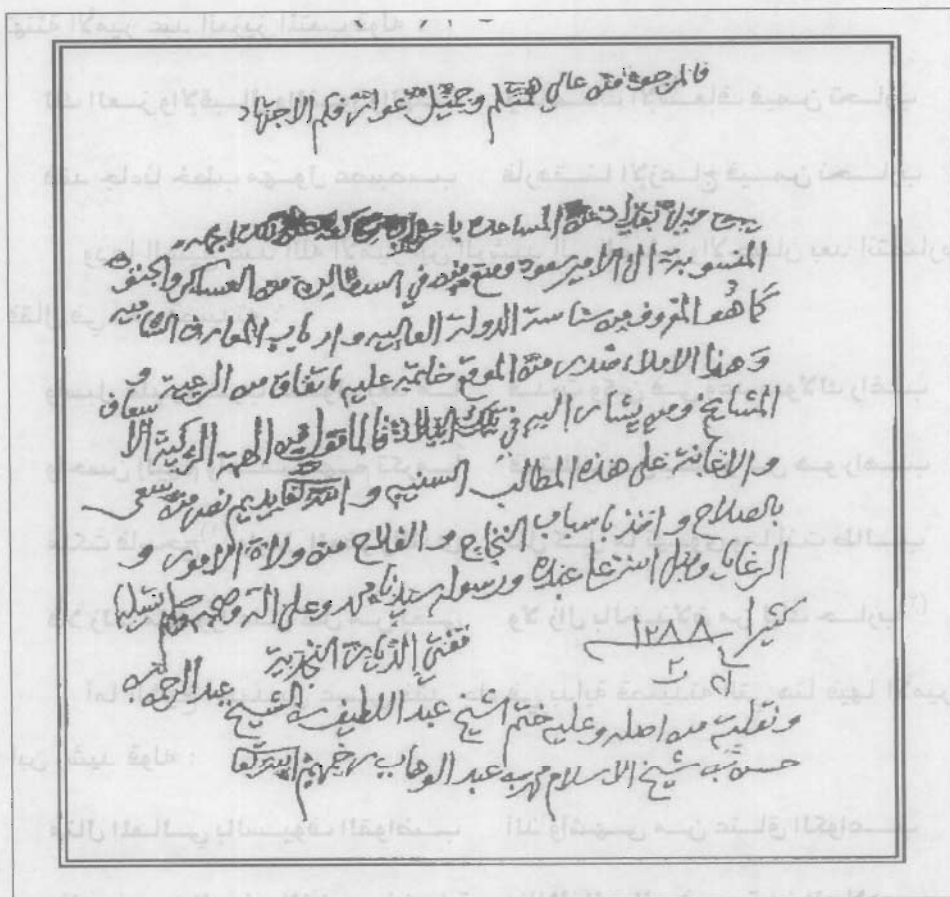 فالمرجو من عالي هممكم وجميل عوائدكم الاجتهاد
المساعده
المنسوبة الى الامير سعود ومنع من في السفاين من العساكر والجنود
كما هو المعروف من سياسة الدولة العاليه وارباب المعارف
وهذا الاملاء صدر من الموقع خاتمه عليه باتفاق من الرعية و
المشايخ ومن يشار اليه في تلك البلاد فالمأمول من الهمم الزكية الا سعاف
والاغاثة على هذه المطالب السنيه والله تعالى يديم نصر من سعى
بالصلاح واخذ باسباب النجاح والفلاح من ولاة الامور و
الرعايا وصلى الله على عبده ورسوله سيدنا محمد وعلى اله وصحبه وسلم تسليما
كثيرا ١٢٨٨
مفتي الديار النجدية
ونقلته من اصله وعليه ختم الشيخ عبد اللطيف بن الشيخ عبد الرحمن بن
حسن بن شيخ الاسلام محمد بن عبد الوهاب رحمهم الله تعالى